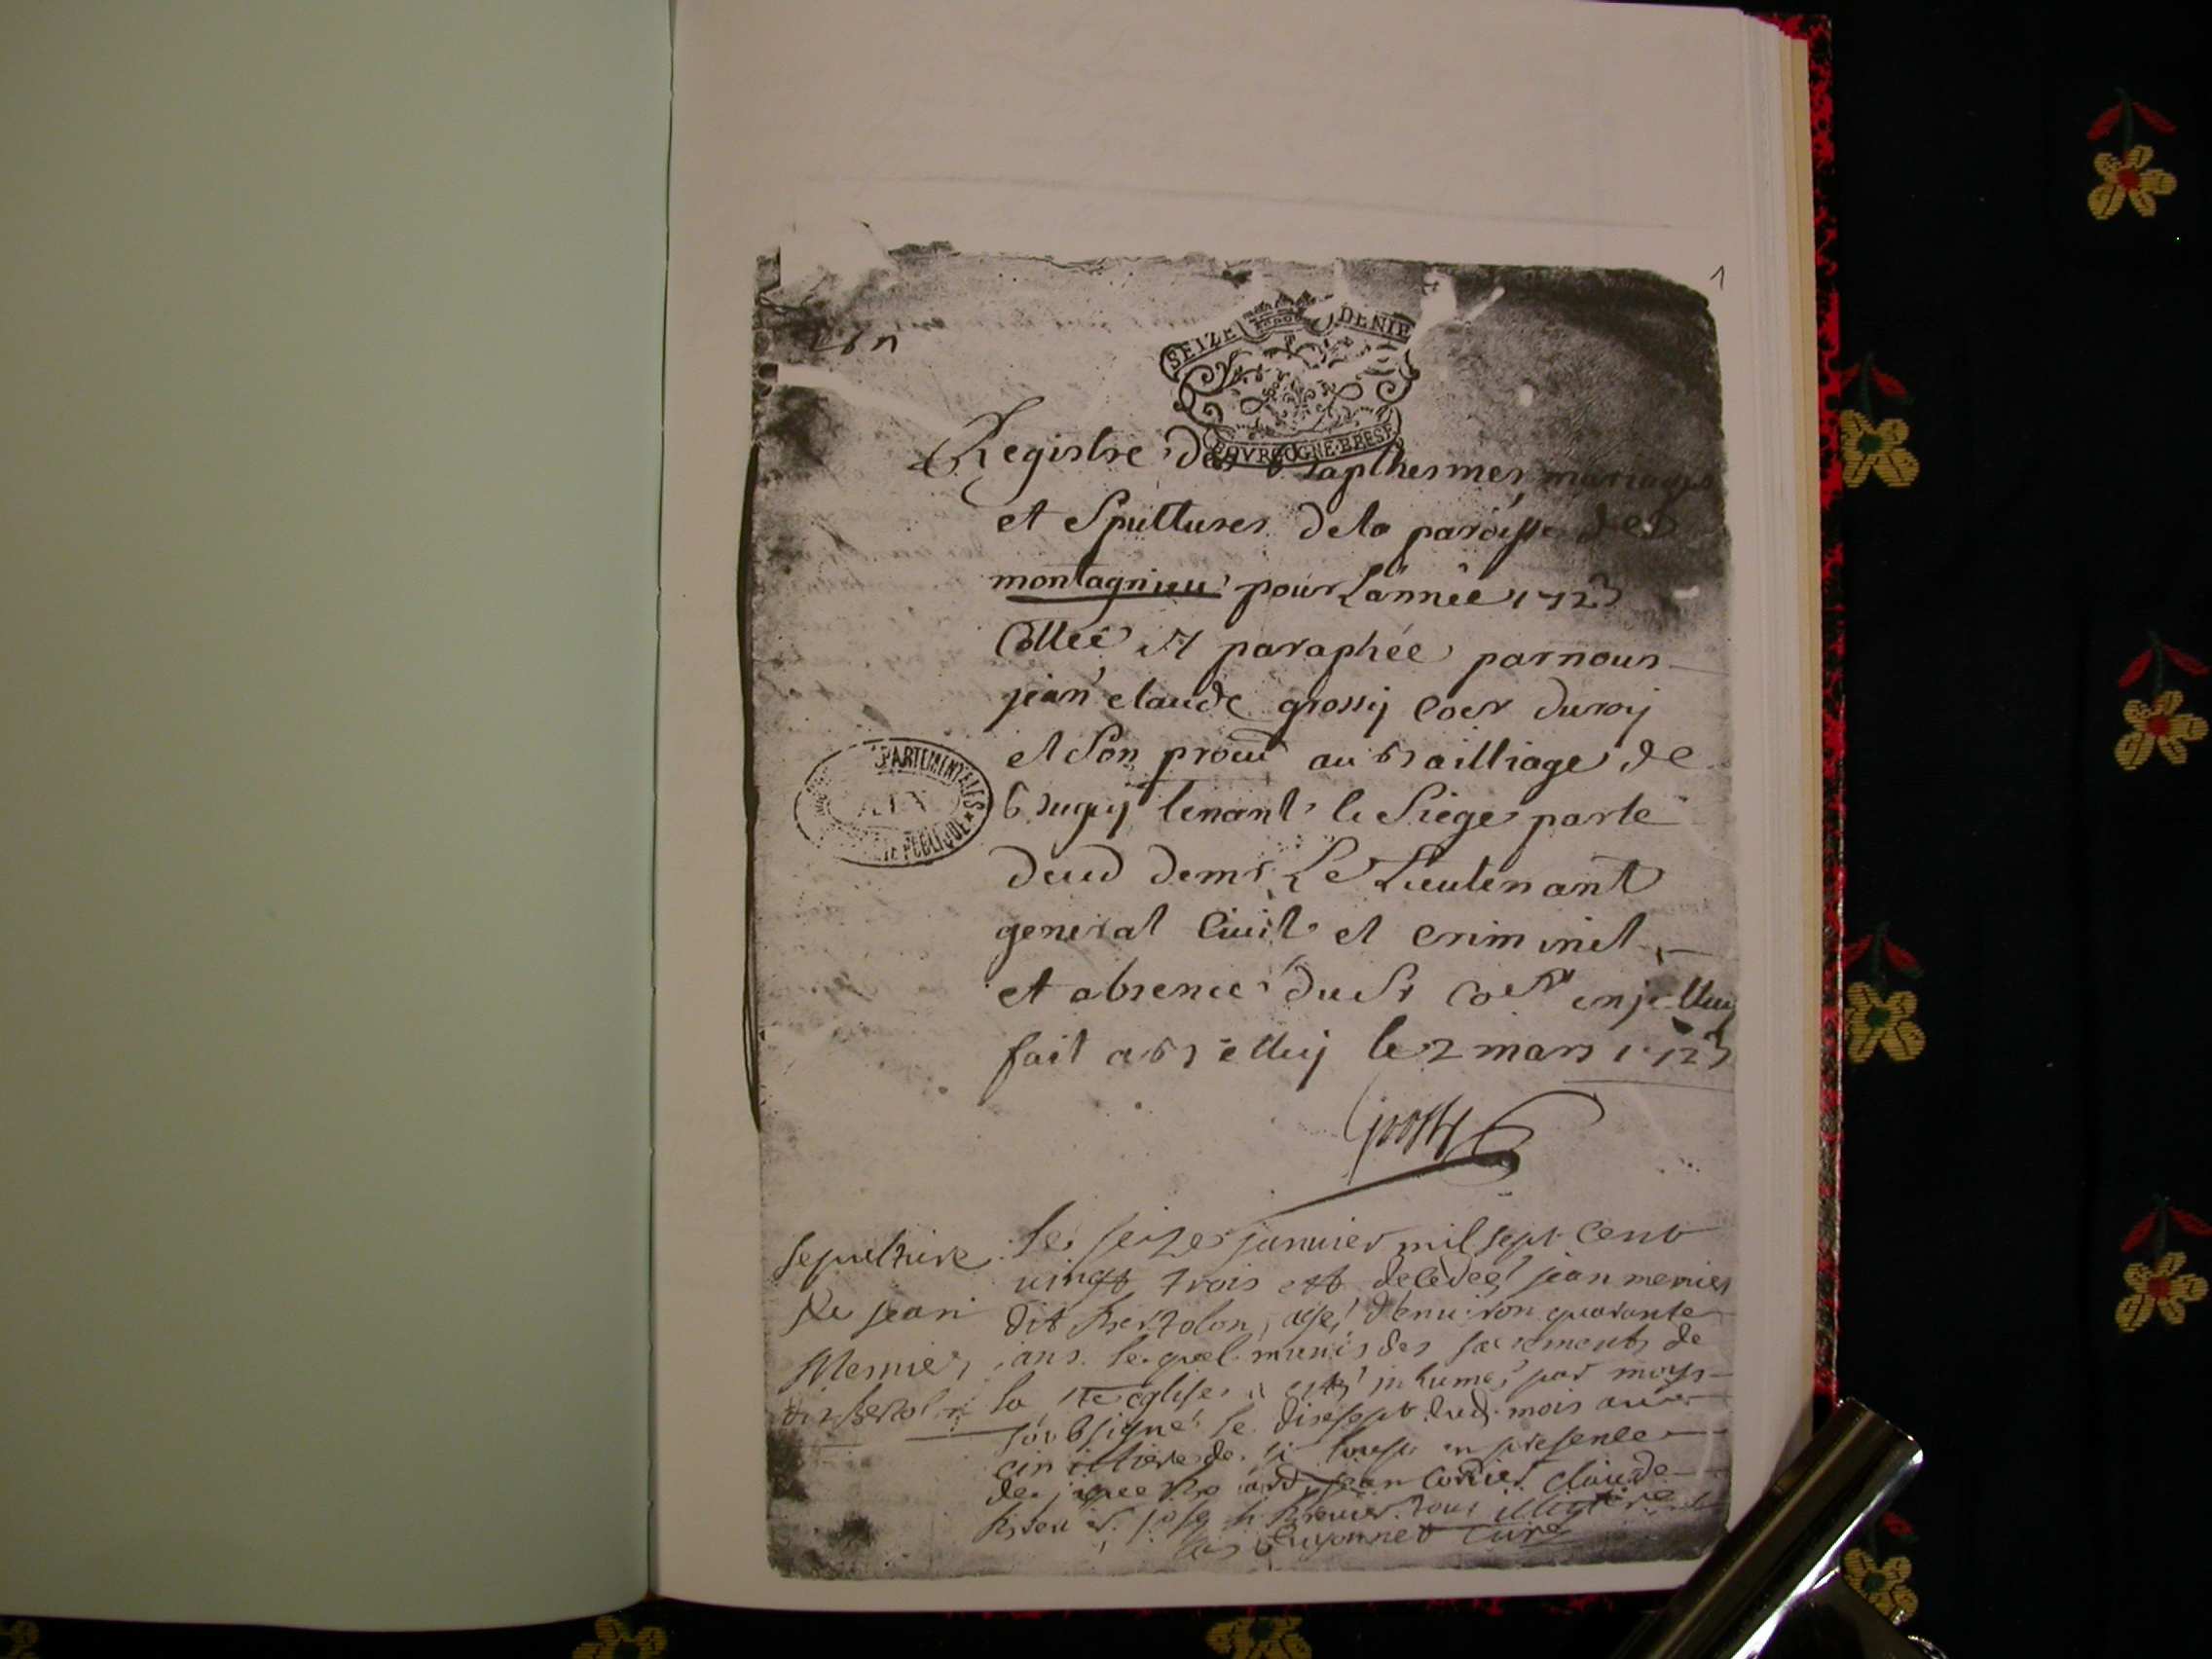 1
SEIZE DENIE
BOVRGOGNE·BRESE
Registre des bapthesmes mariages
et Spultures dela paroisse de
montagnieu pour Lannée 1723
Cottée et paraphée par nous
jean claude grossy coer du roy
et Son procur au bailliage de
bugey tenant le Siege par le
deced de mr Le Lieutenant
general Civil et criminel
et absence du Sr coer
fait a belley le 2 mars 1723
Grossy
PARTEMENTALES
AIN
PUBLIQUE
Sepulture
de jean
Mernier
dit Bertolon
le seize januier mil sept cent
vingt trois est decedé jean mernier
dit Bertolon, agé d'enuiron quarante
ans lequel munis des sacrements de
la ste eglise a esté inhumé par moys
soubsigné le dixsept dud. mois au
cimitiere de en presence
de jean cordier claude
joseph tous
Guyonnet curé